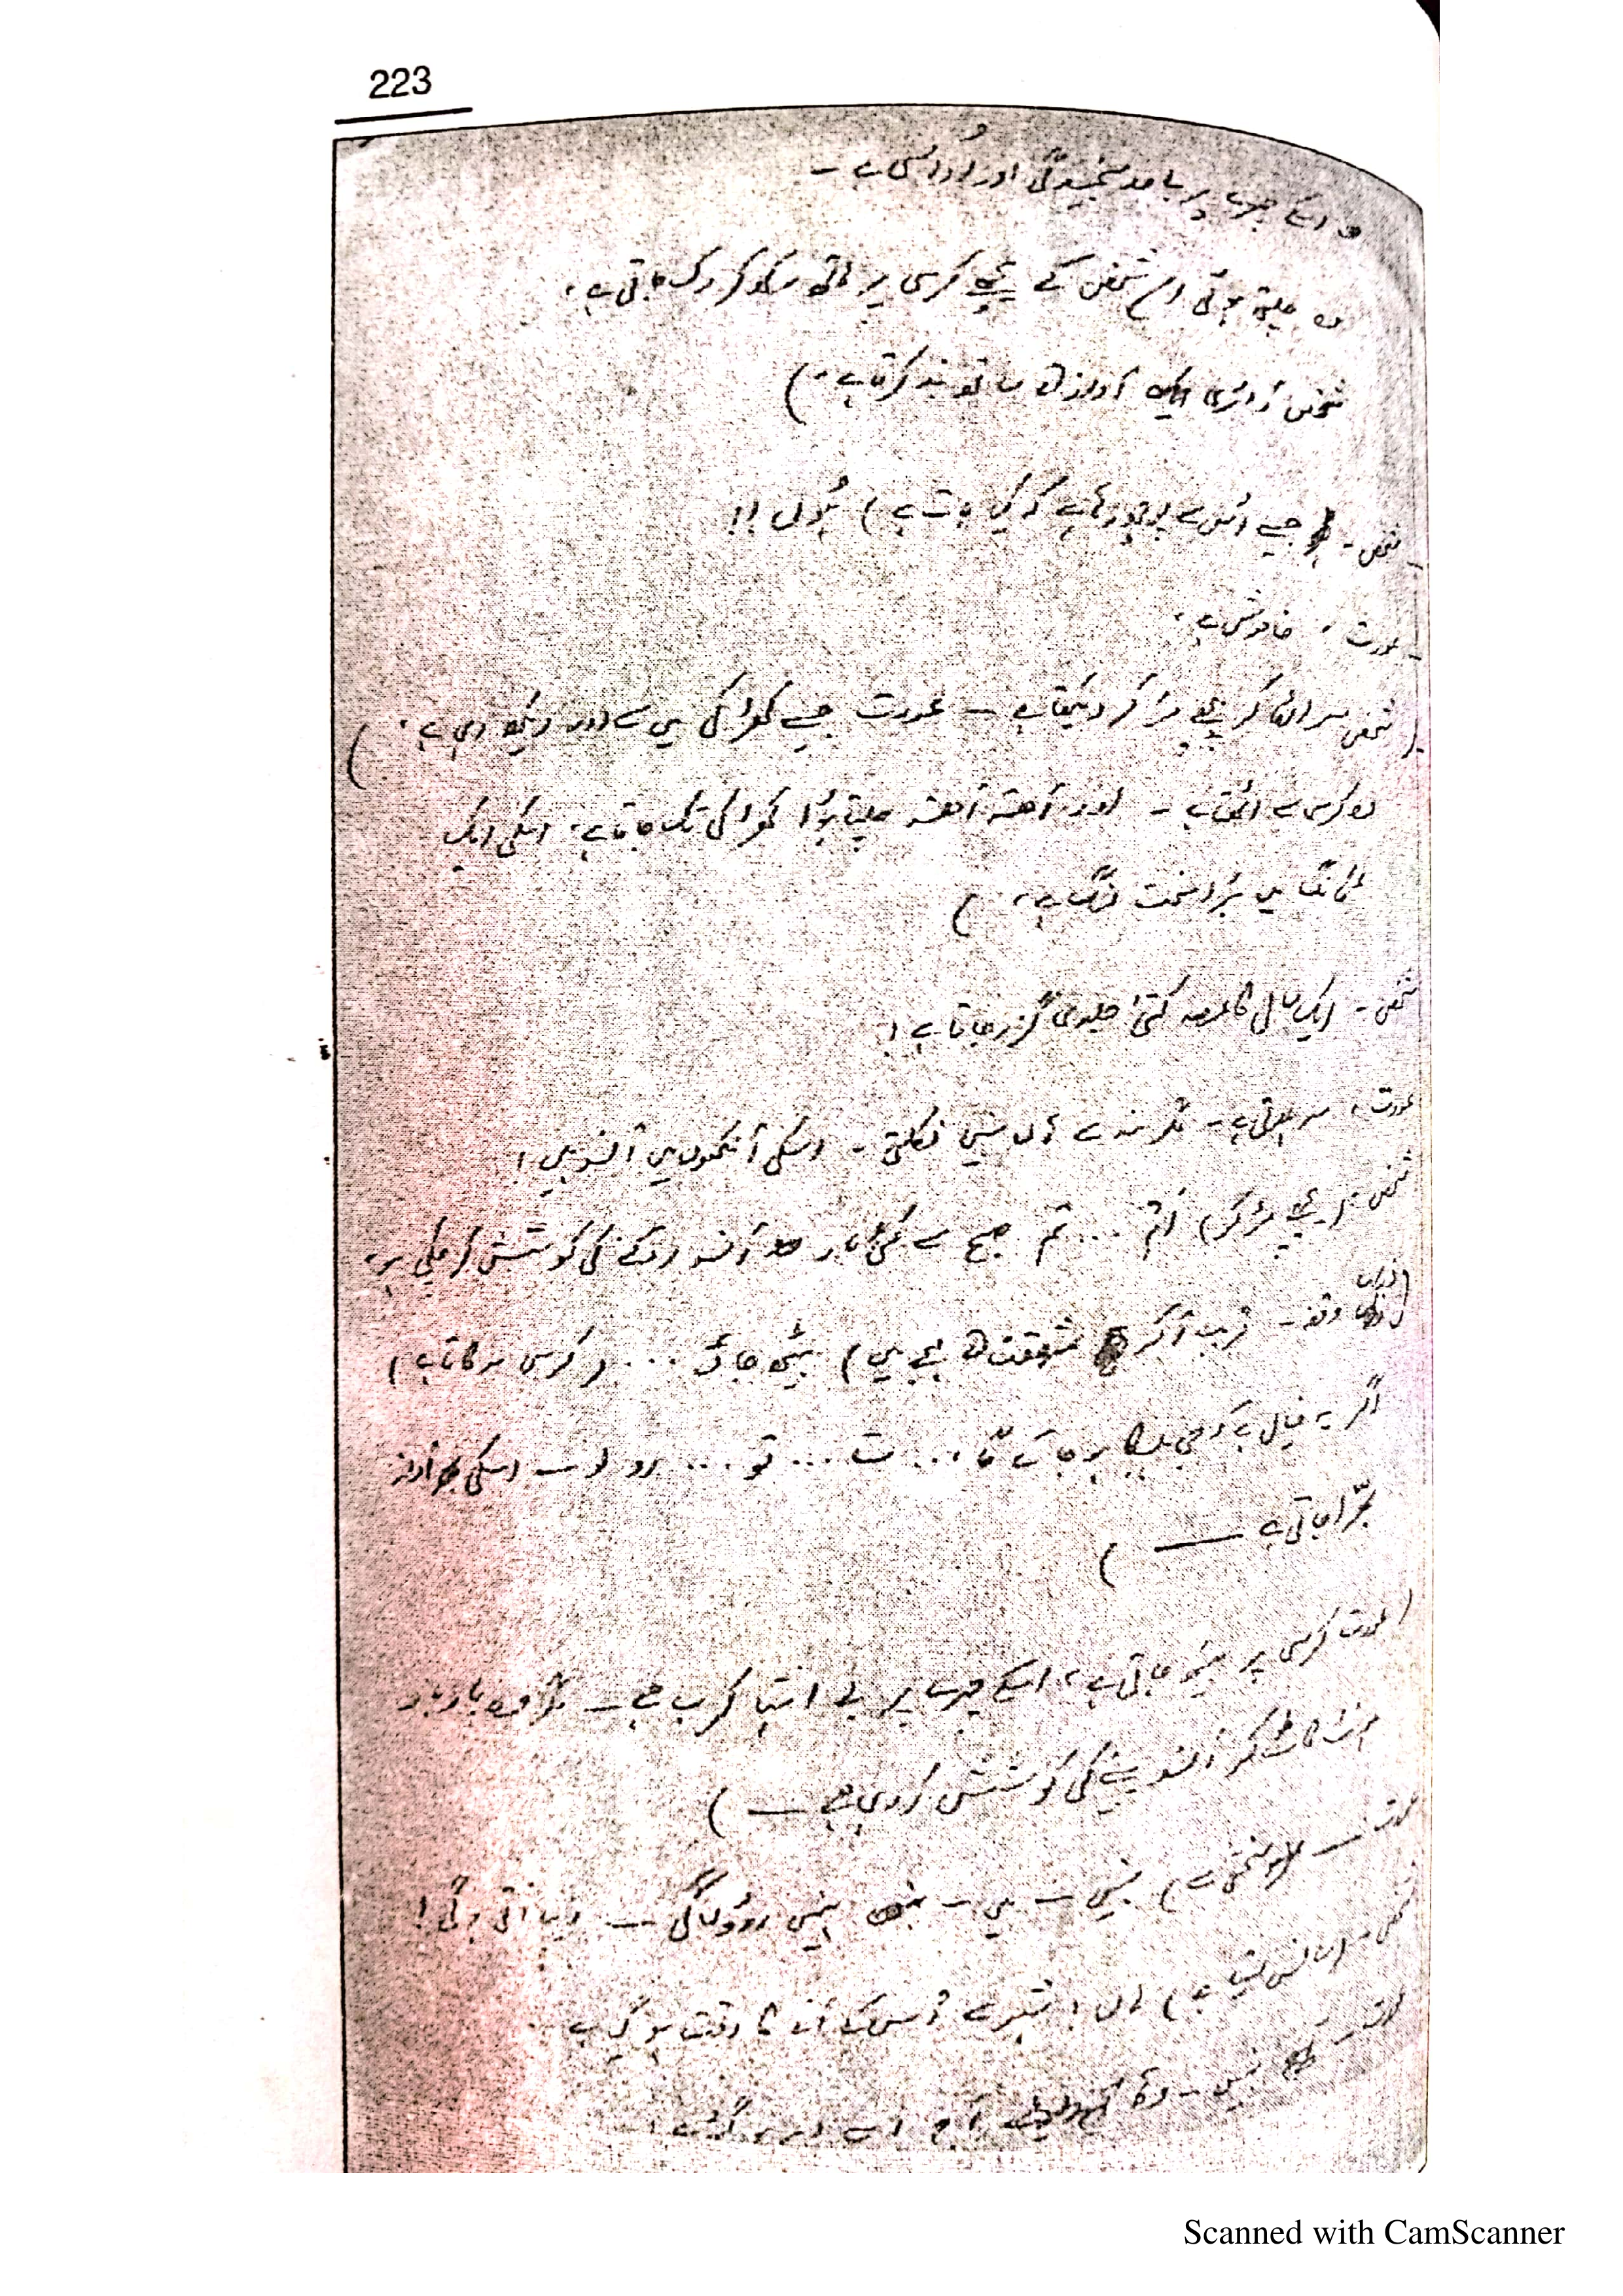 223
اسکے چہرے پر بے حد سنجیدگی اور اُداسی ہے ۔
وہ چلتی ہوئی اس شخص کے پیچھے کرسی پر ہاتھ رکھ کر رک جاتی ہے ۔
شخص ڈائری ایک آواز کے ساتھ بند کرتا ہے ۔)
شخص ۔ جیسے اُس سے پوچھ رہا ہے کہ کیا بات ہے ) ہُوں !!
عورت ۔ خاموش ہے ۔
( شخص سر اٹھا کر پیچھے مڑ کر دیکھتا ہے ۔ عورت جیسے کھڑکی میں سے دور دیکھ رہی ہے ۔ )
وہ کرسی سے اٹھتا ہے ۔ اور آہستہ آہستہ چلتا ہُوا کھڑکی تک جاتا ہے ۔ اسکی ایک
ٹانگ میں بڑا سخت لنگ ہے ۔ )
شخص ۔ ایک سال کا عرصہ کتنی جلدی گزر جاتا ہے !
عورت ۔ سر ہلاتی ہے ۔ مگر منہ سے ہاں نہیں نکلتی ۔ اسکی آنکھوں میں آنسو ہیں !
شخص ۔ ( پیچھے مڑ کر ) تم ... تم صبح سے کئی بار آنسو روکنے کی کوشش کر چکی ہو ۔
( ذرا وقفہ ۔ قریب آ کر شفقت کے لہجے میں ) بیٹھ جاؤ ... ( کرسی سرکاتا ہے )
اگر یہ خیال ہے کہ جی ہلکا ہو جائے گا ... ت ... تو ... رو لو ۔ اسکی آواز
بھرّا جاتی ہے ـــ )
( عورت کرسی پر بیٹھ جاتی ہے ، اسکے چہرے پر بے انتہا کرب ہے ۔ وہ بار بار
ہونٹ کاٹ کر آنسو پینے کی کوشش کر رہی ہے ـــ )
عورت ـــ سختی سے ) نہیں ـــ میں ـــ نہیں روؤں گی ـــ رضیہ آتی ہوگی !
شخص ۔ ( سانس لیتا ہے ) ہاں ! آنے کا وقت ہو گیا ہے
عورت ۔ نہیں ۔ آج اسے دیر ہو گئی
Scanned with CamScanner